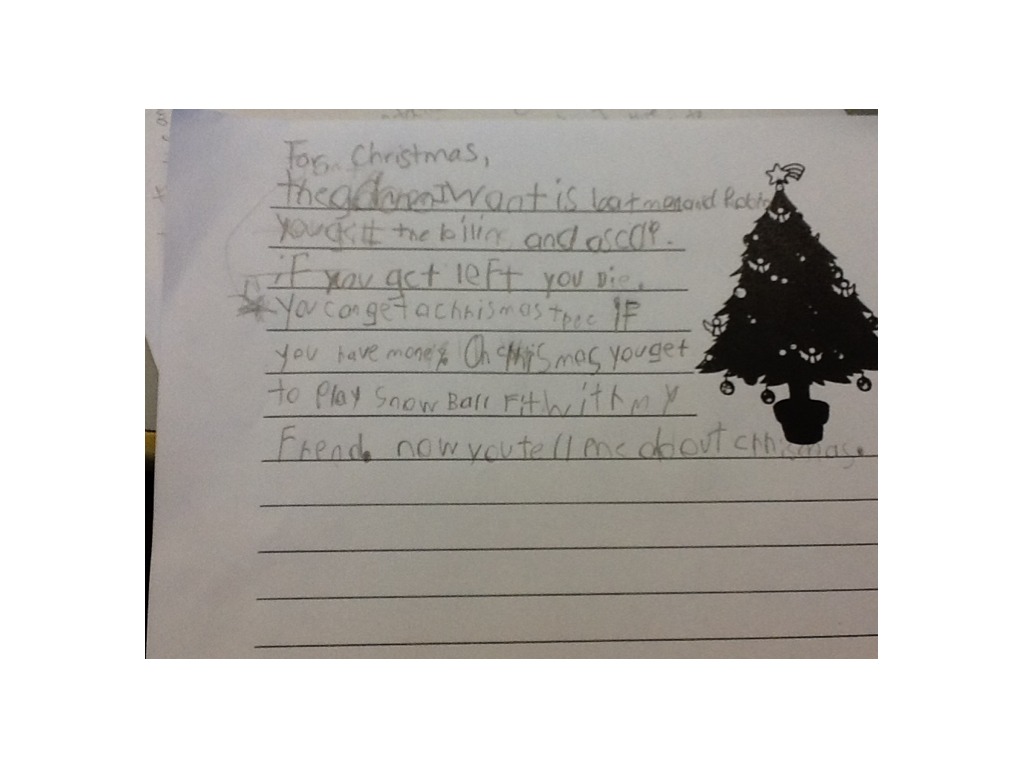 For Christmas,
the I want is batman and
you the and ascap.
if you get left you Die.
You can get a chrismas tree IF
you have money On chrismas you get
to Play Snow Ball Fit with my
Frend. now you tell me about chrismas.